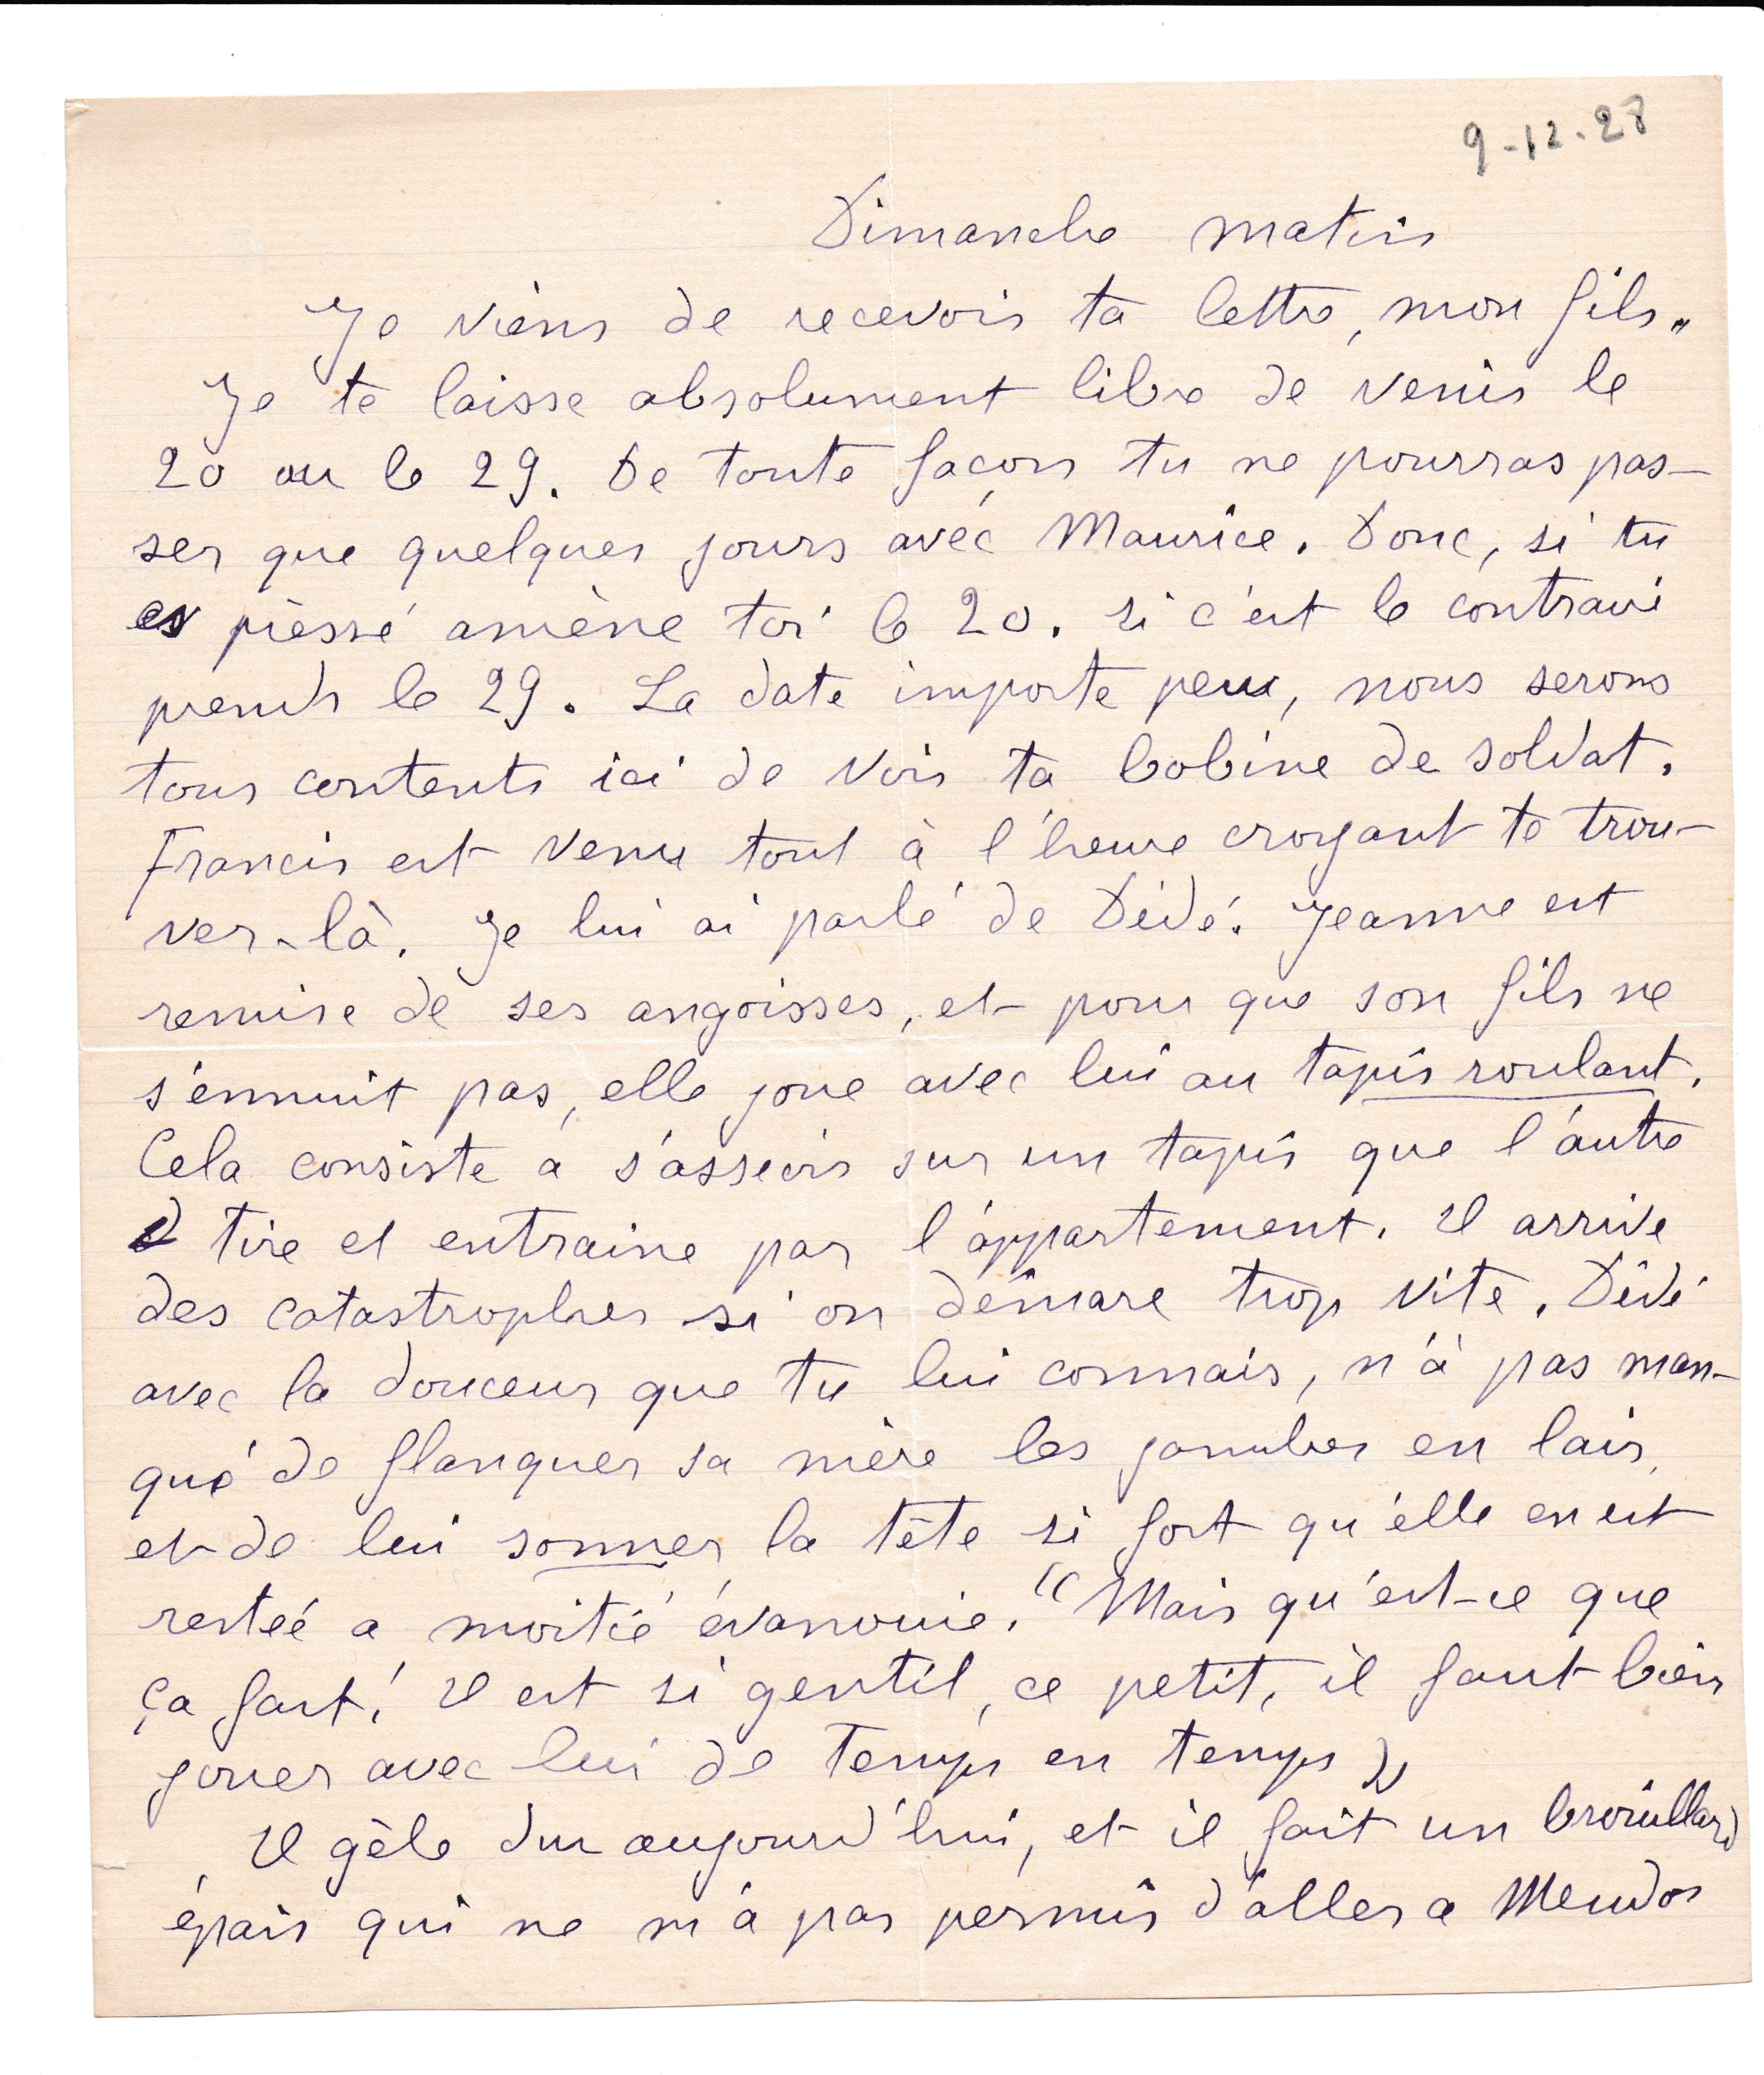 9-12-28
Dimanche matin
Je viens de recevoir ta lettre, mon fils.
Je te laisse absolument libre de venir le
20 ou le 29. De toute façon tu ne pourras pas-
ser que quelques jours avec Maurice. Donc, si tu
es pressé amène toi le 20. si c'est le contraire
prends le 29. La date importe peu, nous serons
tous contents ici de voir ta bobine de soldat.
Francis est venu tout à l'heure croyant te trou-
ver-là. Je lui ai parlé de Dédé. Jeanne est
remise de ses angoisses, et pour que son fils ne
s'ennuit pas, elle joue avec lui au tapis roulant.
Cela consiste a s'asseoir sur un tapis que l'autre
tire et entraine par l'appartement. Il arrive
des catastrophes si on démare trop vite. Dédé
avec la douceur que tu lui connais, n'a pas man-
qué de flanquer sa mère les jambes en lair,
et de lui sonner la tête si fort qu'elle en est
restée a moitié évanouie. "Mais qu'est-ce que
ça fait! Il est si gentil, ce petit, il faut bien
jouer avec lui de temps en temps"
Il gèle dur aujourd'hui, et il fait un brouillard
épais qui ne m'a pas permis d'aller a Meudon